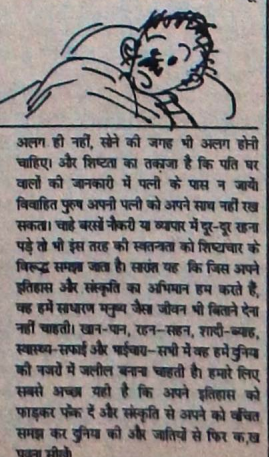 अलग ही नहीं, सोने की जगह भी अलग होनी
चाहिए। और शिष्टता का तकाजा है कि पति घर
वालों की जानकारी में पत्नी के पास न जाये।
विवाहित पुरुष अपनी पत्नी को अपने साथ नहीं रख
सकता। चाहे बरसों नौकरी या व्यापार में दूर-दूर रहना
पड़े तो भी इस तरह की स्वतन्त्रता को शिष्टाचार के
विरूद्ध समझा जाता है। सारांश यह कि जिस अपने
इतिहास और संस्कृति का अभिमान हम करते हैं,
वह हमें साधारण मनुष्य जैसा जीवन भी बिताने देना
नहीं चाहती। खान-पान, रहन-सहन, शादी-ब्याह,
स्वास्थ्य-सफाई और भाईचारा-सभी में वह हमें दुनिया
की नजरों में जलील बनाना चाहती है। हमारे लिए
सबसे अच्छा यही है कि अपने इतिहास को
फाड़कर फेंक दें और संस्कृति से अपने को वंचित
समझ कर दुनिया की और जातियों से फिर क,ख
पढ़ना सीखें।